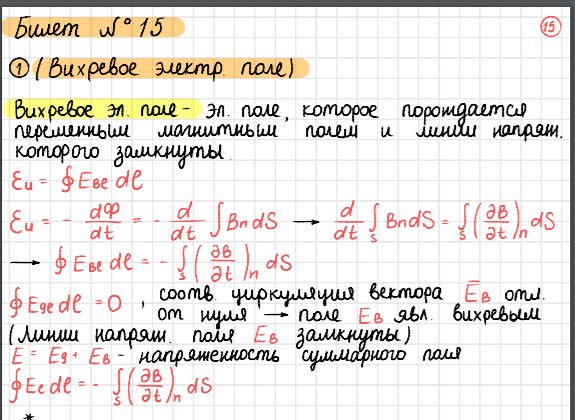 Билет №15
15
① (Вихревое электр. поле)
Вихревое эл. поле - эл. поле, которое порождается
переменным магнитным полем и линии напряж.
которого замкнуты.
Ɛи = ∮ Eвe dl
Ɛи = - dФ/dt = - d/dt ∫ Bn dS → d/dt ∫s Bn dS = ∫s (∂B/∂t)n dS
→ ∮ Eвe dl = - ∫s (∂B/∂t)n dS
∮ Eqe dl = 0 , соотв. циркуляция вектора E̅в отл.
от нуля → поле Eв явл. вихревым
(линии напряж. поля Eв замкнуты)
E = Eq + Eв - напряженность суммарного поля
∮ Ee dl = - ∫s (∂B/∂t)n dS
*